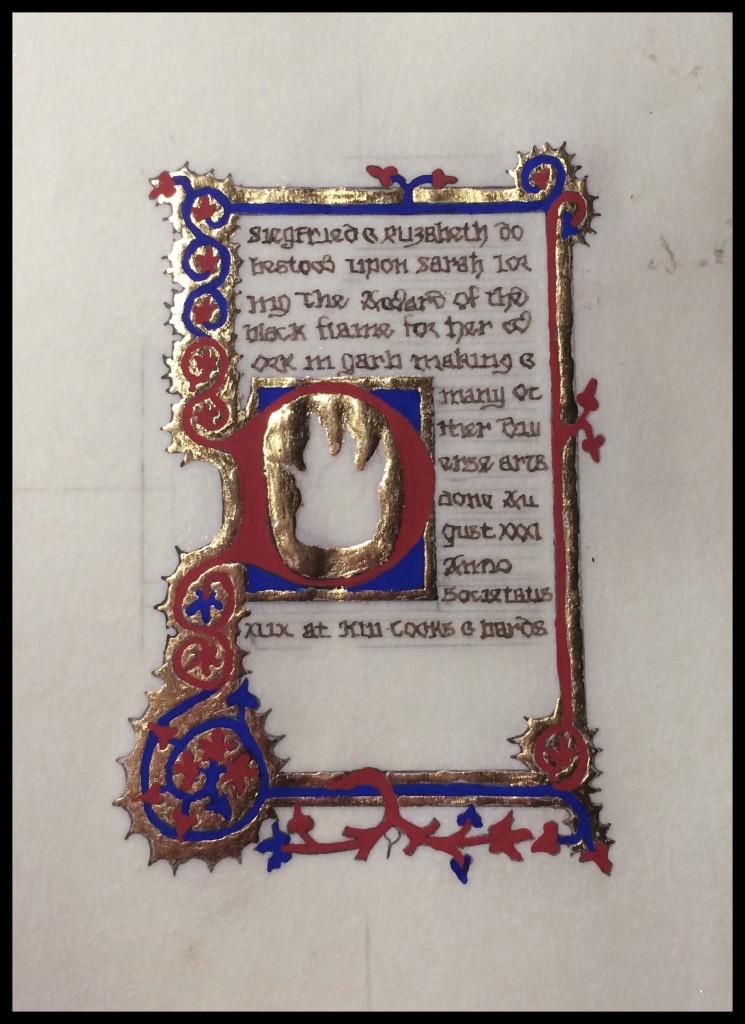 Siegfried & Elizabeth do
bestow upon Sarah Lor
ing The Award of the
black flame for her w
ork in garb making &
many ot
her div
erse arts
done Au
gust XXXI
Anno
Societatis
XLIX at Kin Cooks & bards